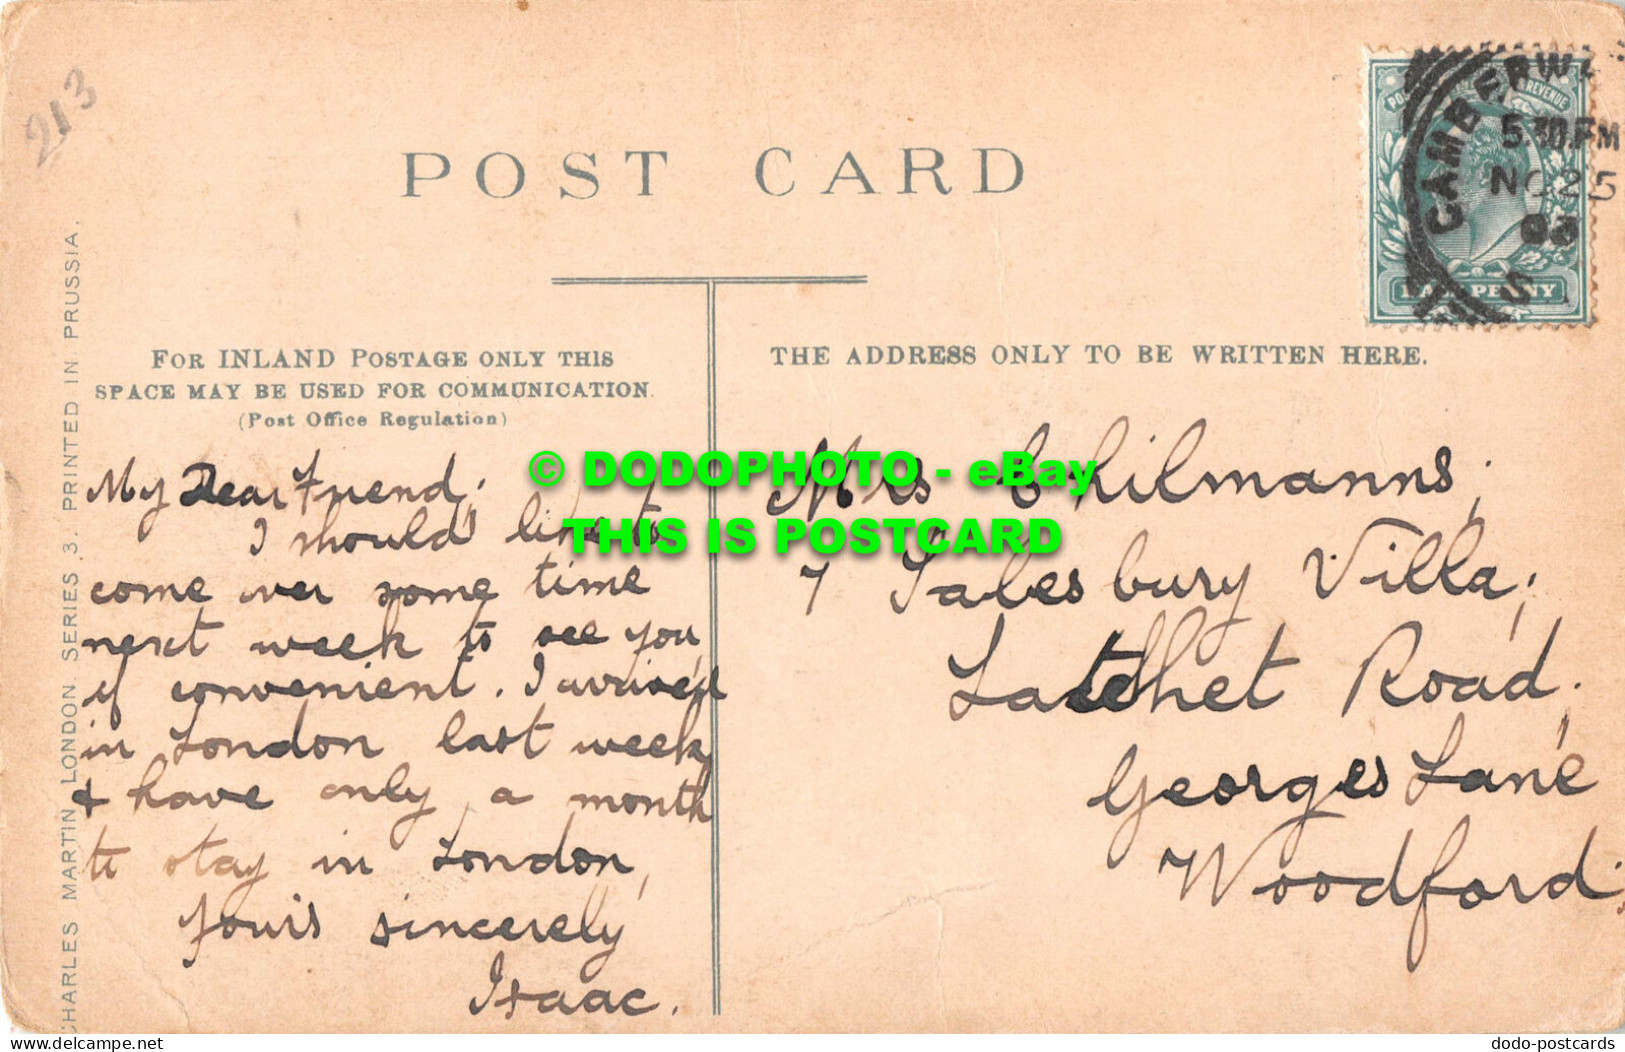 213
POST CARD
CAMBERWE
5.30.PM
NO 25
03
S
HALFPENNY
CHARLES MARTIN LONDON. SERIES .3. PRINTED IN PRUSSIA.
FOR INLAND POSTAGE ONLY THIS
SPACE MAY BE USED FOR COMMUNICATION.
(Post Office Regulation)
THE ADDRESS ONLY TO BE WRITTEN HERE.
My Dear Friend;
I should like to
come over some time
next week to see you,
if convenient. I arrived
in London last week
& have only a month
to stay in London,
Yours sincerely
Isaac.
Mrs Chilmanns,
7 Salesbury Villa,
Latchet Road.
Georges Lane
Woodford.
© DODOPHOTO - eBay
THIS IS POSTCARD
delcampe.net
dodo-postcards